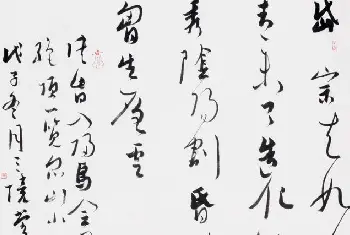 岱宗夫如
青未了造化
秀陰陽割昏
胷生層雲
決眥入歸鳥會
絕頂一覽眾山小
戊子冬月三境堂